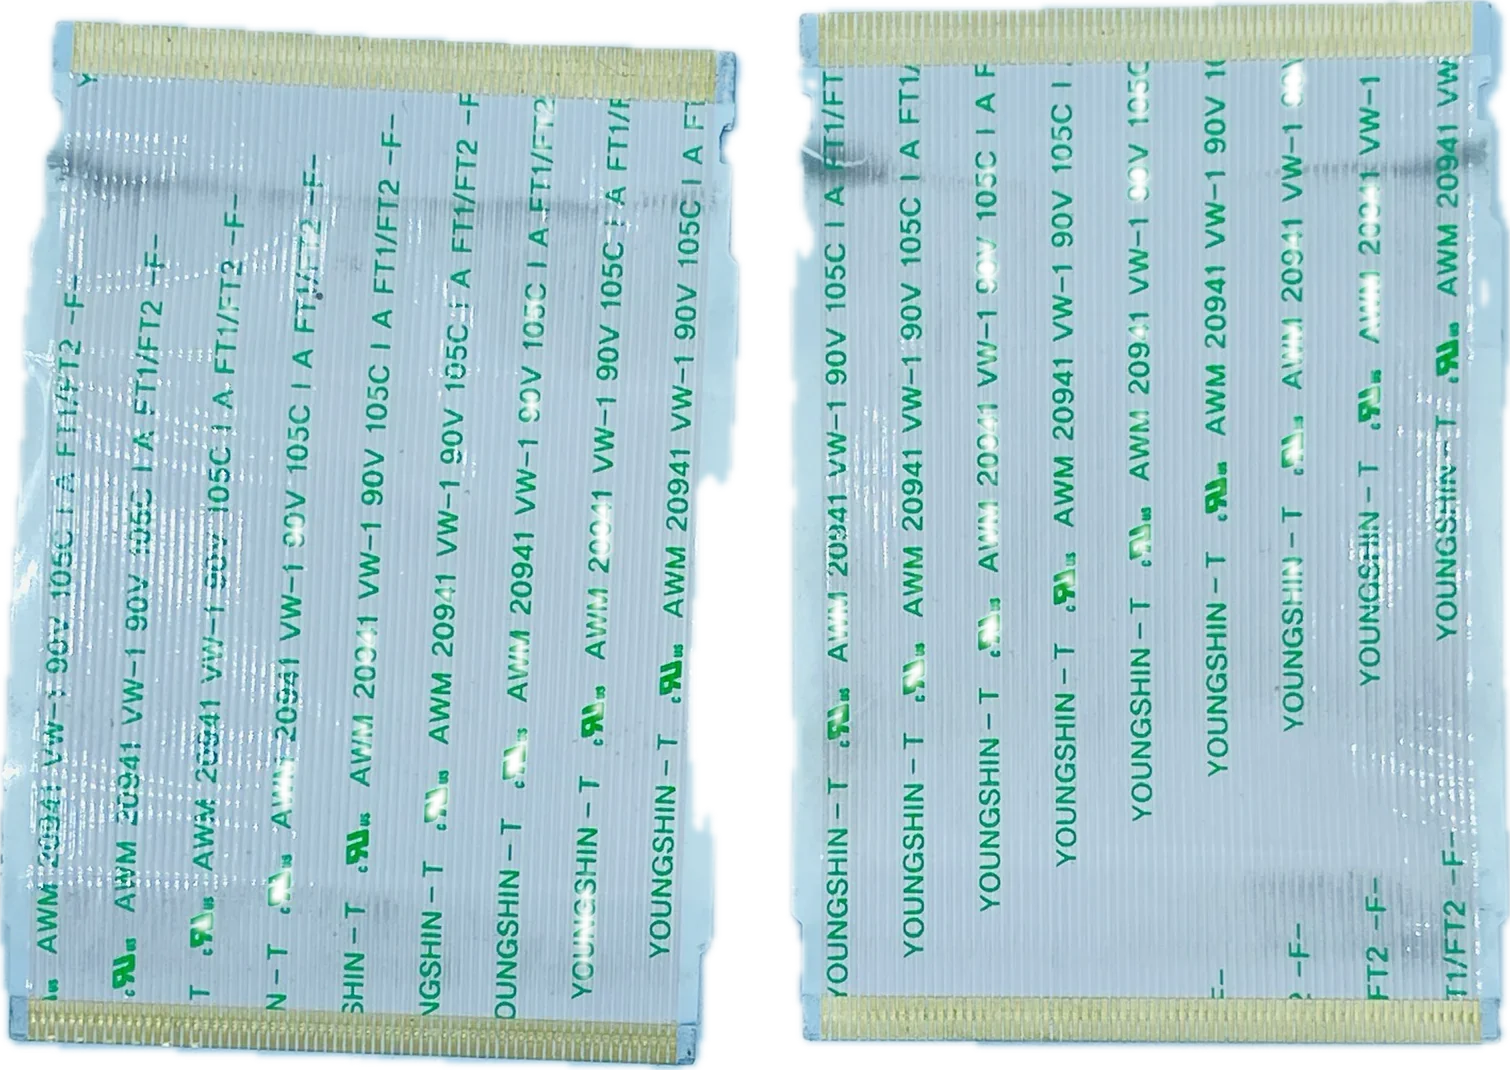 us AWM 20941 VW-1 90V 105C I A FT1/FT2 -F- Y
cRUus AWM 20941 VW-1 90V 105C I A FT1/FT2 -F-
T cRUus AWM 20941 VW-1 90V 105C I A FT1/FT2 -F-
N-T cRUus AWM 20941 VW-1 90V 105C I A FT1/FT2 -F-
SHIN-T cRUus AWM 20941 VW-1 90V 105C I A FT1/FT2 -F-
NGSHIN-T cRUus AWM 20941 VW-1 90V 105C I A FT1/FT2 -F
OUNGSHIN-T cRUus AWM 20941 VW-1 90V 105C I A FT1/FT2
YOUNGSHIN-T cRUus AWM 20941 VW-1 90V 105C I A FT1/F
YOUNGSHIN-T cRUus AWM 20941 VW-1 90V 105C I A FT
YOUNGSHIN-T cRUus AWM 20941 VW-1 90V 105C I A FT1/FT
YOUNGSHIN-T cRUus AWM 20941 VW-1 90V 105C I A FT1/
YOUNGSHIN-T cRUus AWM 20941 VW-1 90V 105C I A F
YOUNGSHIN-T cRUus AWM 20941 VW-1 90V 105C I
YOUNGSHIN-T cRUus AWM 20941 VW-1 90V 105C
F- YOUNGSHIN-T cRUus AWM 20941 VW-1 90V 10
2 -F- YOUNGSHIN-T cRUus AWM 20941 VW-1 90V
FT2 -F- YOUNGSHIN-T cRUus AWM 20941 VW-1
T1/FT2 -F- YOUNGSHIN-T cRUus AWM 20941 VW